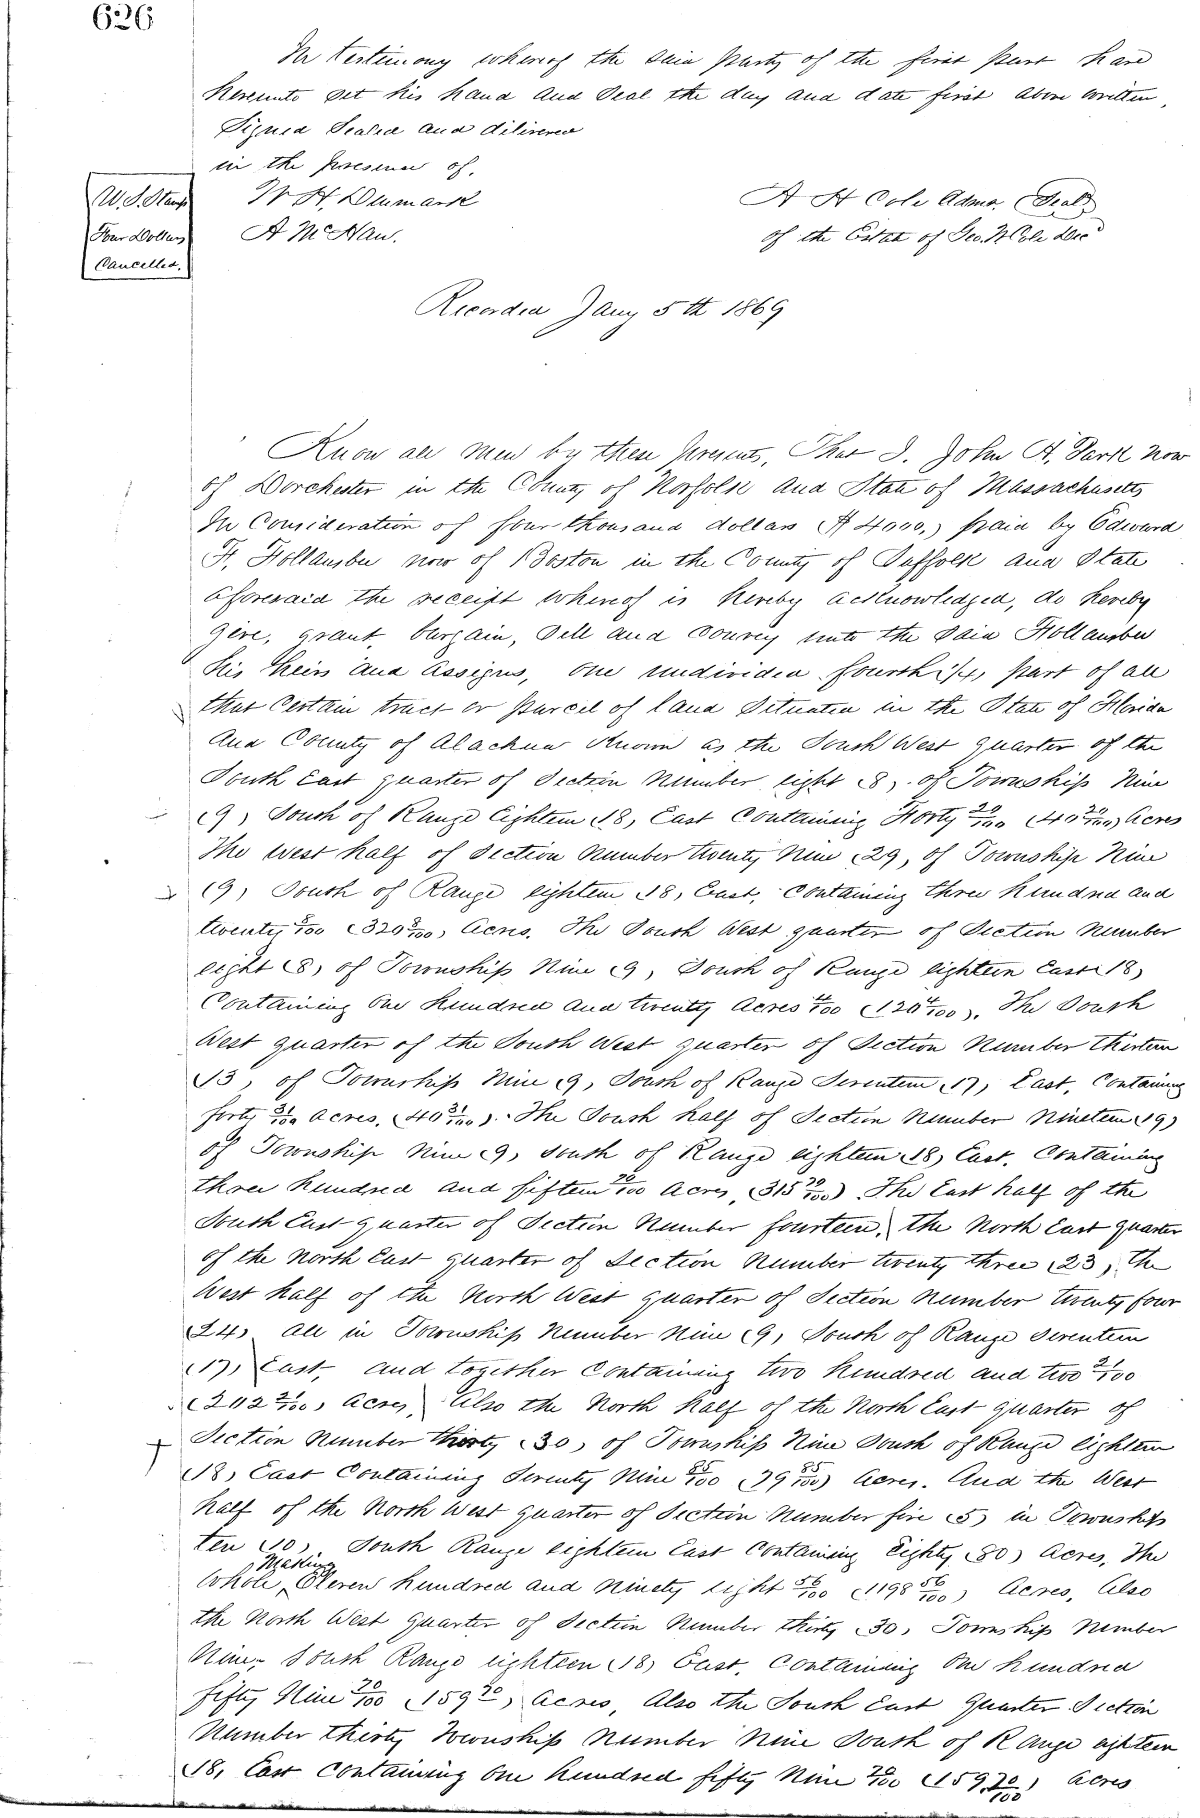 626
In testimony whereof the said party of the first part have
hereunto set his hand and Seal the day and date first above written,
Signed Sealed and delivered
in the presence of,
W. H. Denmark
A McHan.
U.S. Stamp
Four Dollars
Cancelled.
A H Cole Admr. (Seal)
of the Estate of Geo. W Cole Decd
Recorded Jany 5th 1869
Know all men by these presents, That I. John H. Park now
of Dorchester in the County of Norfolk and State of Massachusetts
In Consideration of four thousand dollars ($4000,) paid by Edward
F. Hollander now of Boston in the County of Suffolk and State
aforesaid the receipt whereof is hereby acknowledged, do hereby
give, grant, bargain, Sell and Convey unto the said Hollander
his heirs and assigns, one undivided fourth (1/4) part of all
that Certain tract or parcel of land Situated in the State of Florida
and County of Alachua Known as the South West quarter of the
South East quarter of Section Number eight (8), of Township Nine
(9) South of Range Eighteen (18) East Containing Forty 20/100 (40 20/100) Acres
The West half of Section Number twenty Nine (29), of Township Nine
(9) South of Range eighteen (18) East, Containing three hundred and
twenty 8/100 (320 8/100) Acres. The South West quarter of Section Number
eight (8) of Township Nine (9) South of Range eighteen East (18)
Containing One hundred and twenty Acres 4/100 (120 4/100). The South
West quarter of the South West quarter of Section Number thirteen
(13), of Township Nine (9) South of Range Seventeen (17) East, Containing
forty 31/100 acres, (40 31/100). The South half of Section Number Nineteen (19)
of Township Nine (9) South of Range eighteen (18) East. Containing
three hundred and fifteen 70/100 Acres, (315 70/100) The East half of the
South East quarter of Section Number fourteen, the North East quarter
of the North East quarter of Section Number twenty three (23), the
West half of the North West quarter of Section Number twenty four
(24) all in Township Number Nine (9) South of Range Seventeen
(17) East, and together Containing two hundred and two 21/100
(202 21/100) acres, Also the North half of the North East quarter of
Section Number thirty (30) of Township Nine South of Range Eighteen
(18) East Containing Seventy Nine 85/100 (79 85/100) Acres. And the West
half of the North West quarter of Section Number five (5) in Township
ten (10) South Range eighteen East Containing Eighty (80) Acres, The
Making
Whole, Eleven hundred and Ninety eight 56/100 (1198 56/100) Acres, Also
the North West quarter of Section Number thirty (30) Township Number
Nine South Range eighteen (18) East, Containing One hundred
fifty Nine 70/100 (159 70) Acres, Also the South East Quarter Section
Number thirty Township Number Nine South of Range eighteen
(18) East Containing One hundred fifty Nine 70/100 (159 70/100) Acres